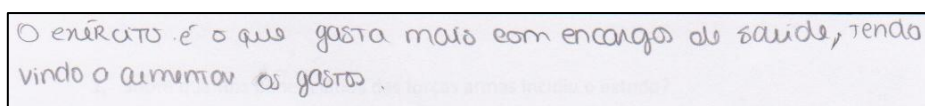 O exército é o que gasta mais com encargos de saúde, tendo
vindo a aumentar os gastos